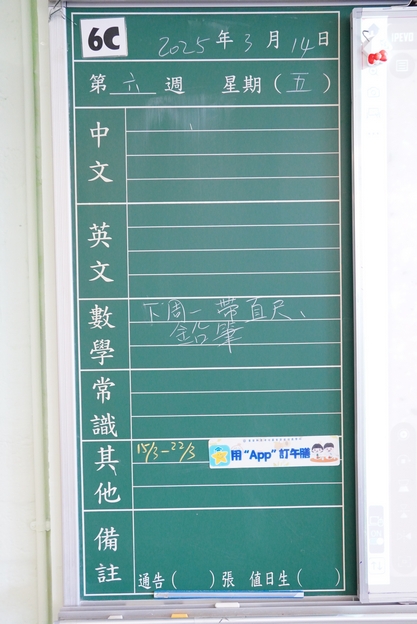 6C
2025年3月14日
第六週 星期(五)
中文
英文
數學
下周一 帶直尺、
鉛筆
常識
其他
15/3-22/3
用“App”訂午膳
備註
通告( )張 值日生( )